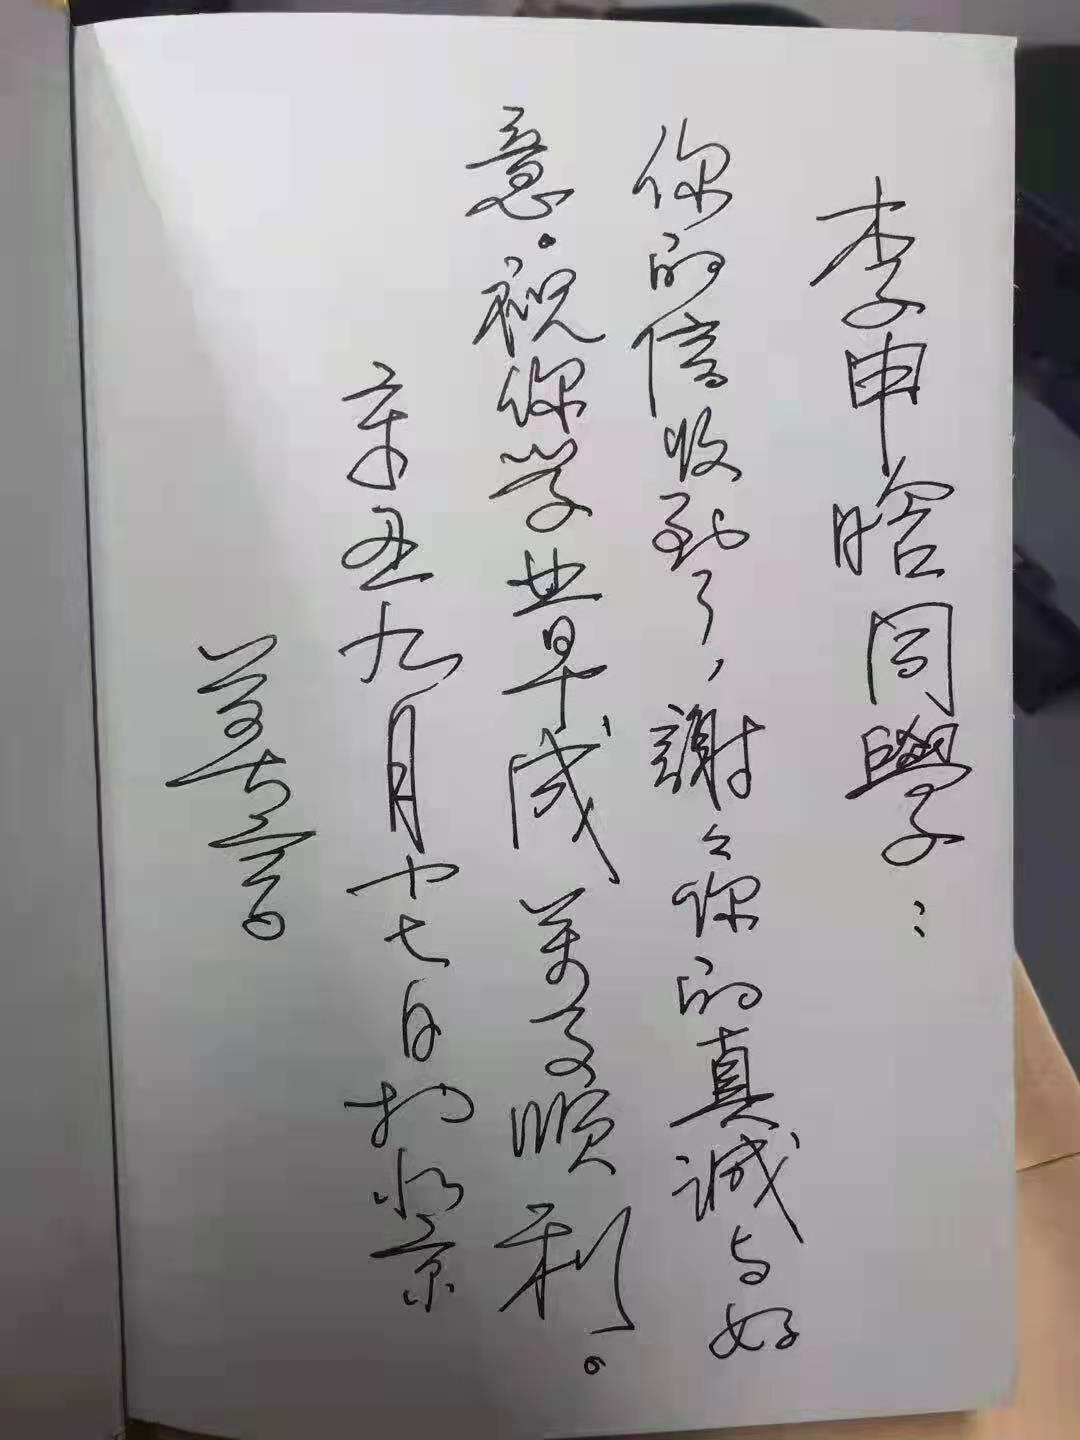 李申晗同學：
你的信收到了，謝々你的真诚与好
意。祝你学业早成 萬事顺利。
辛丑九月十七日於北京
莫言